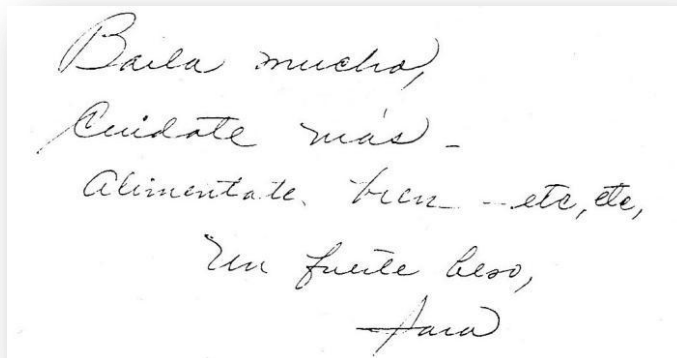 Baila mucho,
Cuidate más -
Alimentate. bien -- etc, etc,
Un fuerte beso,
Sara